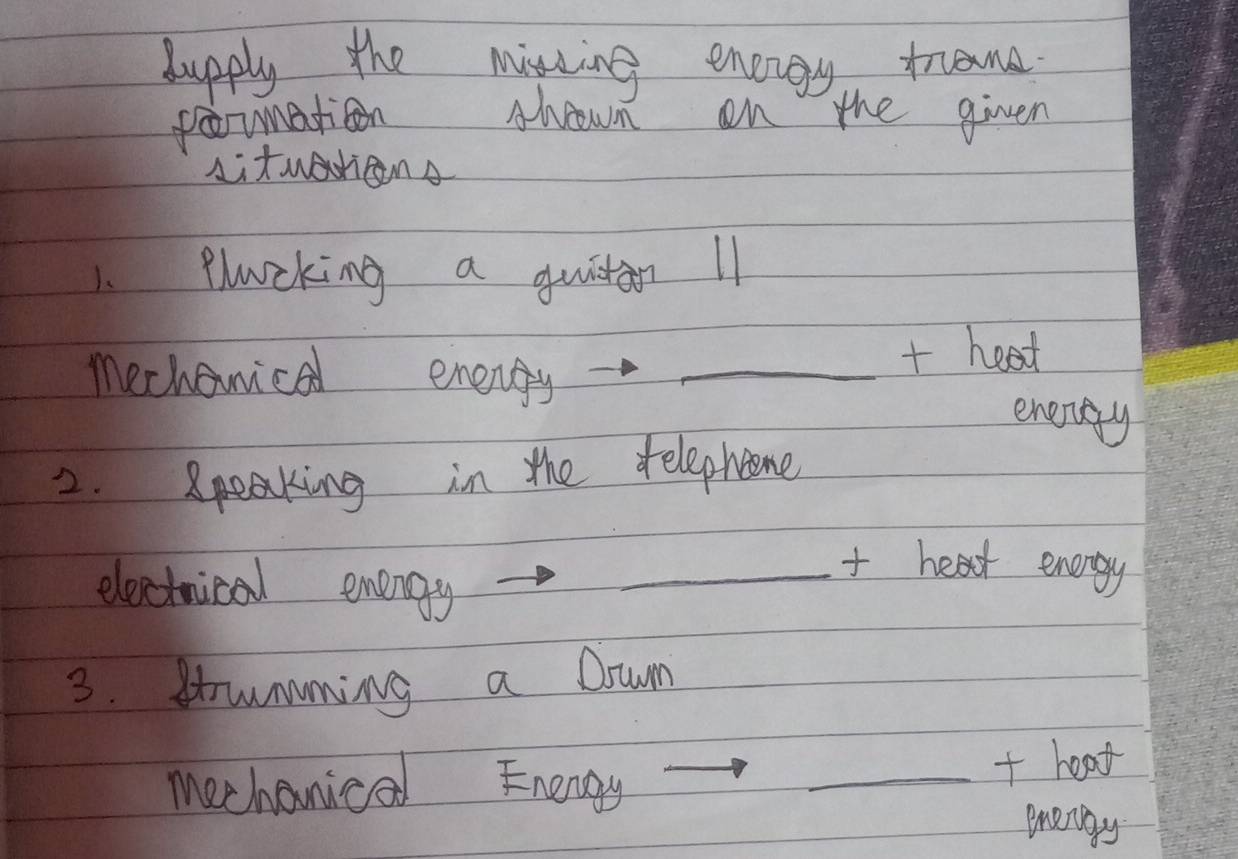 Supply the missing energy trans-
formation shown on the given
situations
1. Plucking a guitar ||
Mechanical energy → ________ + heat
energy
2. Speaking in the telephone
electrical energy → ________ + heat energy
3. Strumming a Drum
Mechanical Energy → ________ + heat
energy